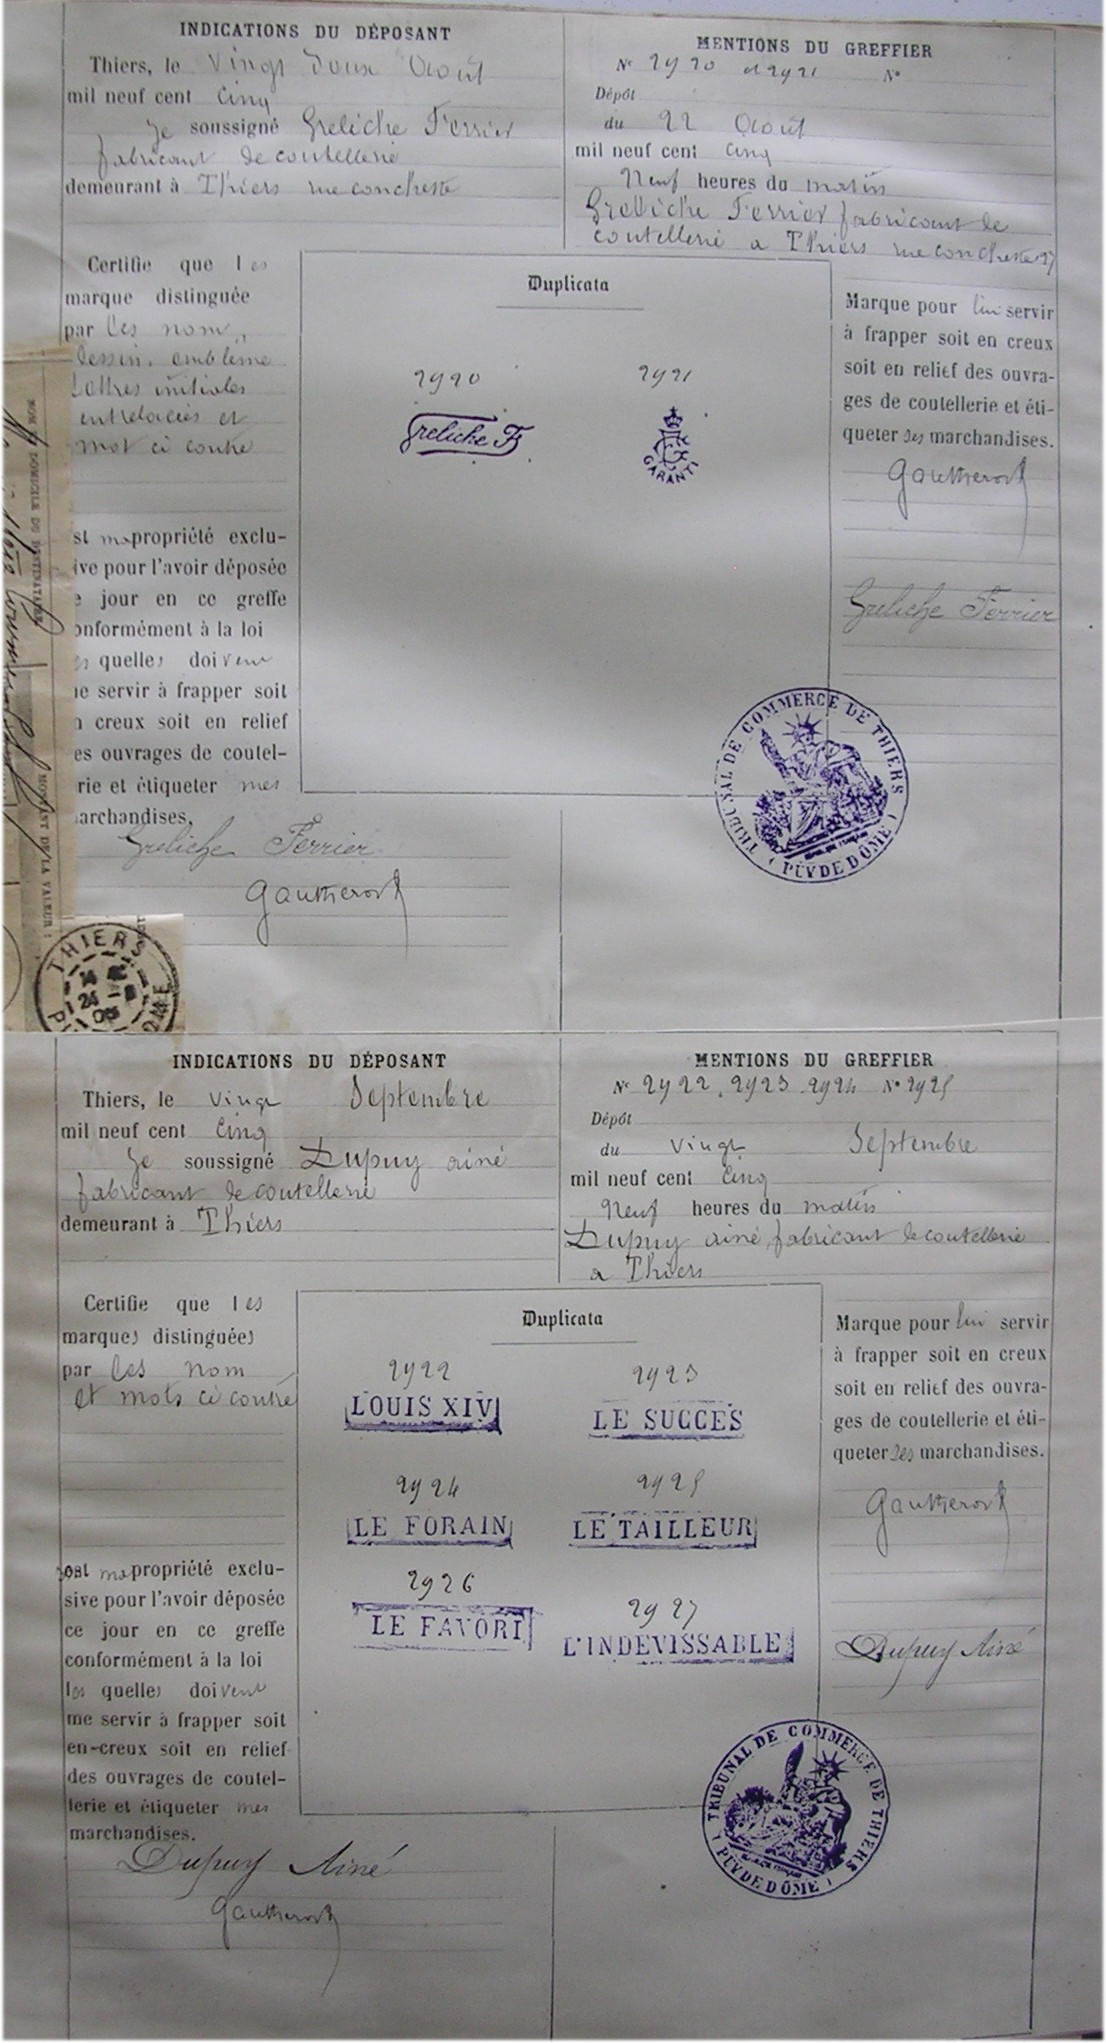 INDICATIONS DU DÉPOSANT
Thiers, le vingt Deux Août
mil neuf cent Cinq
Je soussigné Greliche Ferrier
fabricant de coutellerie
demeurant à Thiers rue conchette
MENTIONS DU GREFFIER
Nº 2920 et 2921 Nº
Dépôt
du 22 Août
mil neuf cent cinq
Neuf heures du matin
Greliche Ferrier fabricant de
coutellerie a Thiers rue conchette 27
Certifie que les
marque distinguée
par les nom,
dessin, emblème
Lettres initiales
entrelacées et
mot ci contre
st ma propriété exclu-
ive pour l'avoir déposée
e jour en ce greffe
onformément à la loi
es quelles doivent
me servir à frapper soit
n creux soit en relief
es ouvrages de coutel-
rie et étiqueter mes
marchandises.
Greliche Ferrier
Gautheront
Duplicata
2920
2921
Greliche F
GARANTI
Marque pour lui servir
à frapper soit en creux
soit en relief des ouvra-
ges de coutellerie et éti-
queter ses marchandises.
Gautheront
Greliche Ferrier
TRIBUNAL DE COMMERCE DE THIERS
( PUY DE DÔME )
NOM ET DOMICILE DU DESTINATAIRE
MONTANT DE LA VALEUR
THIERS
24
INDICATIONS DU DÉPOSANT
Thiers, le vingt Septembre
mil neuf cent Cinq
Je soussigné Dupuy ainé
fabricant de coutellerie
demeurant à Thiers
MENTIONS DU GREFFIER
Nº 2922, 2923 2924 Nº 2925
Dépôt
du vingt Septembre
mil neuf cent Cinq
Neuf heures du matin
Dupuy ainé fabricant de coutellerie
a Thiers
Certifie que les
marques distinguées
par les nom
et mots ci contre
sont ma propriété exclu-
sive pour l'avoir déposée
ce jour en ce greffe
conformément à la loi
les quelles doivent
me servir à frapper soit
en creux soit en relief
des ouvrages de coutel-
lerie et étiqueter mes
marchandises.
Dupuy Ainé
Gautheront
Duplicata
2922
2923
LOUIS XIV
LE SUCCES
2924
2925
LE FORAIN
LE TAILLEUR
2926
2927
LE FAVORI
L'INDEVISSABLE
Marque pour lui servir
à frapper soit en creux
soit en relief des ouvra-
ges de coutellerie et éti-
queter ses marchandises.
Gautheront
Dupuy Ainé
TRIBUNAL DE COMMERCE DE THIERS
( PUY DE DÔME )